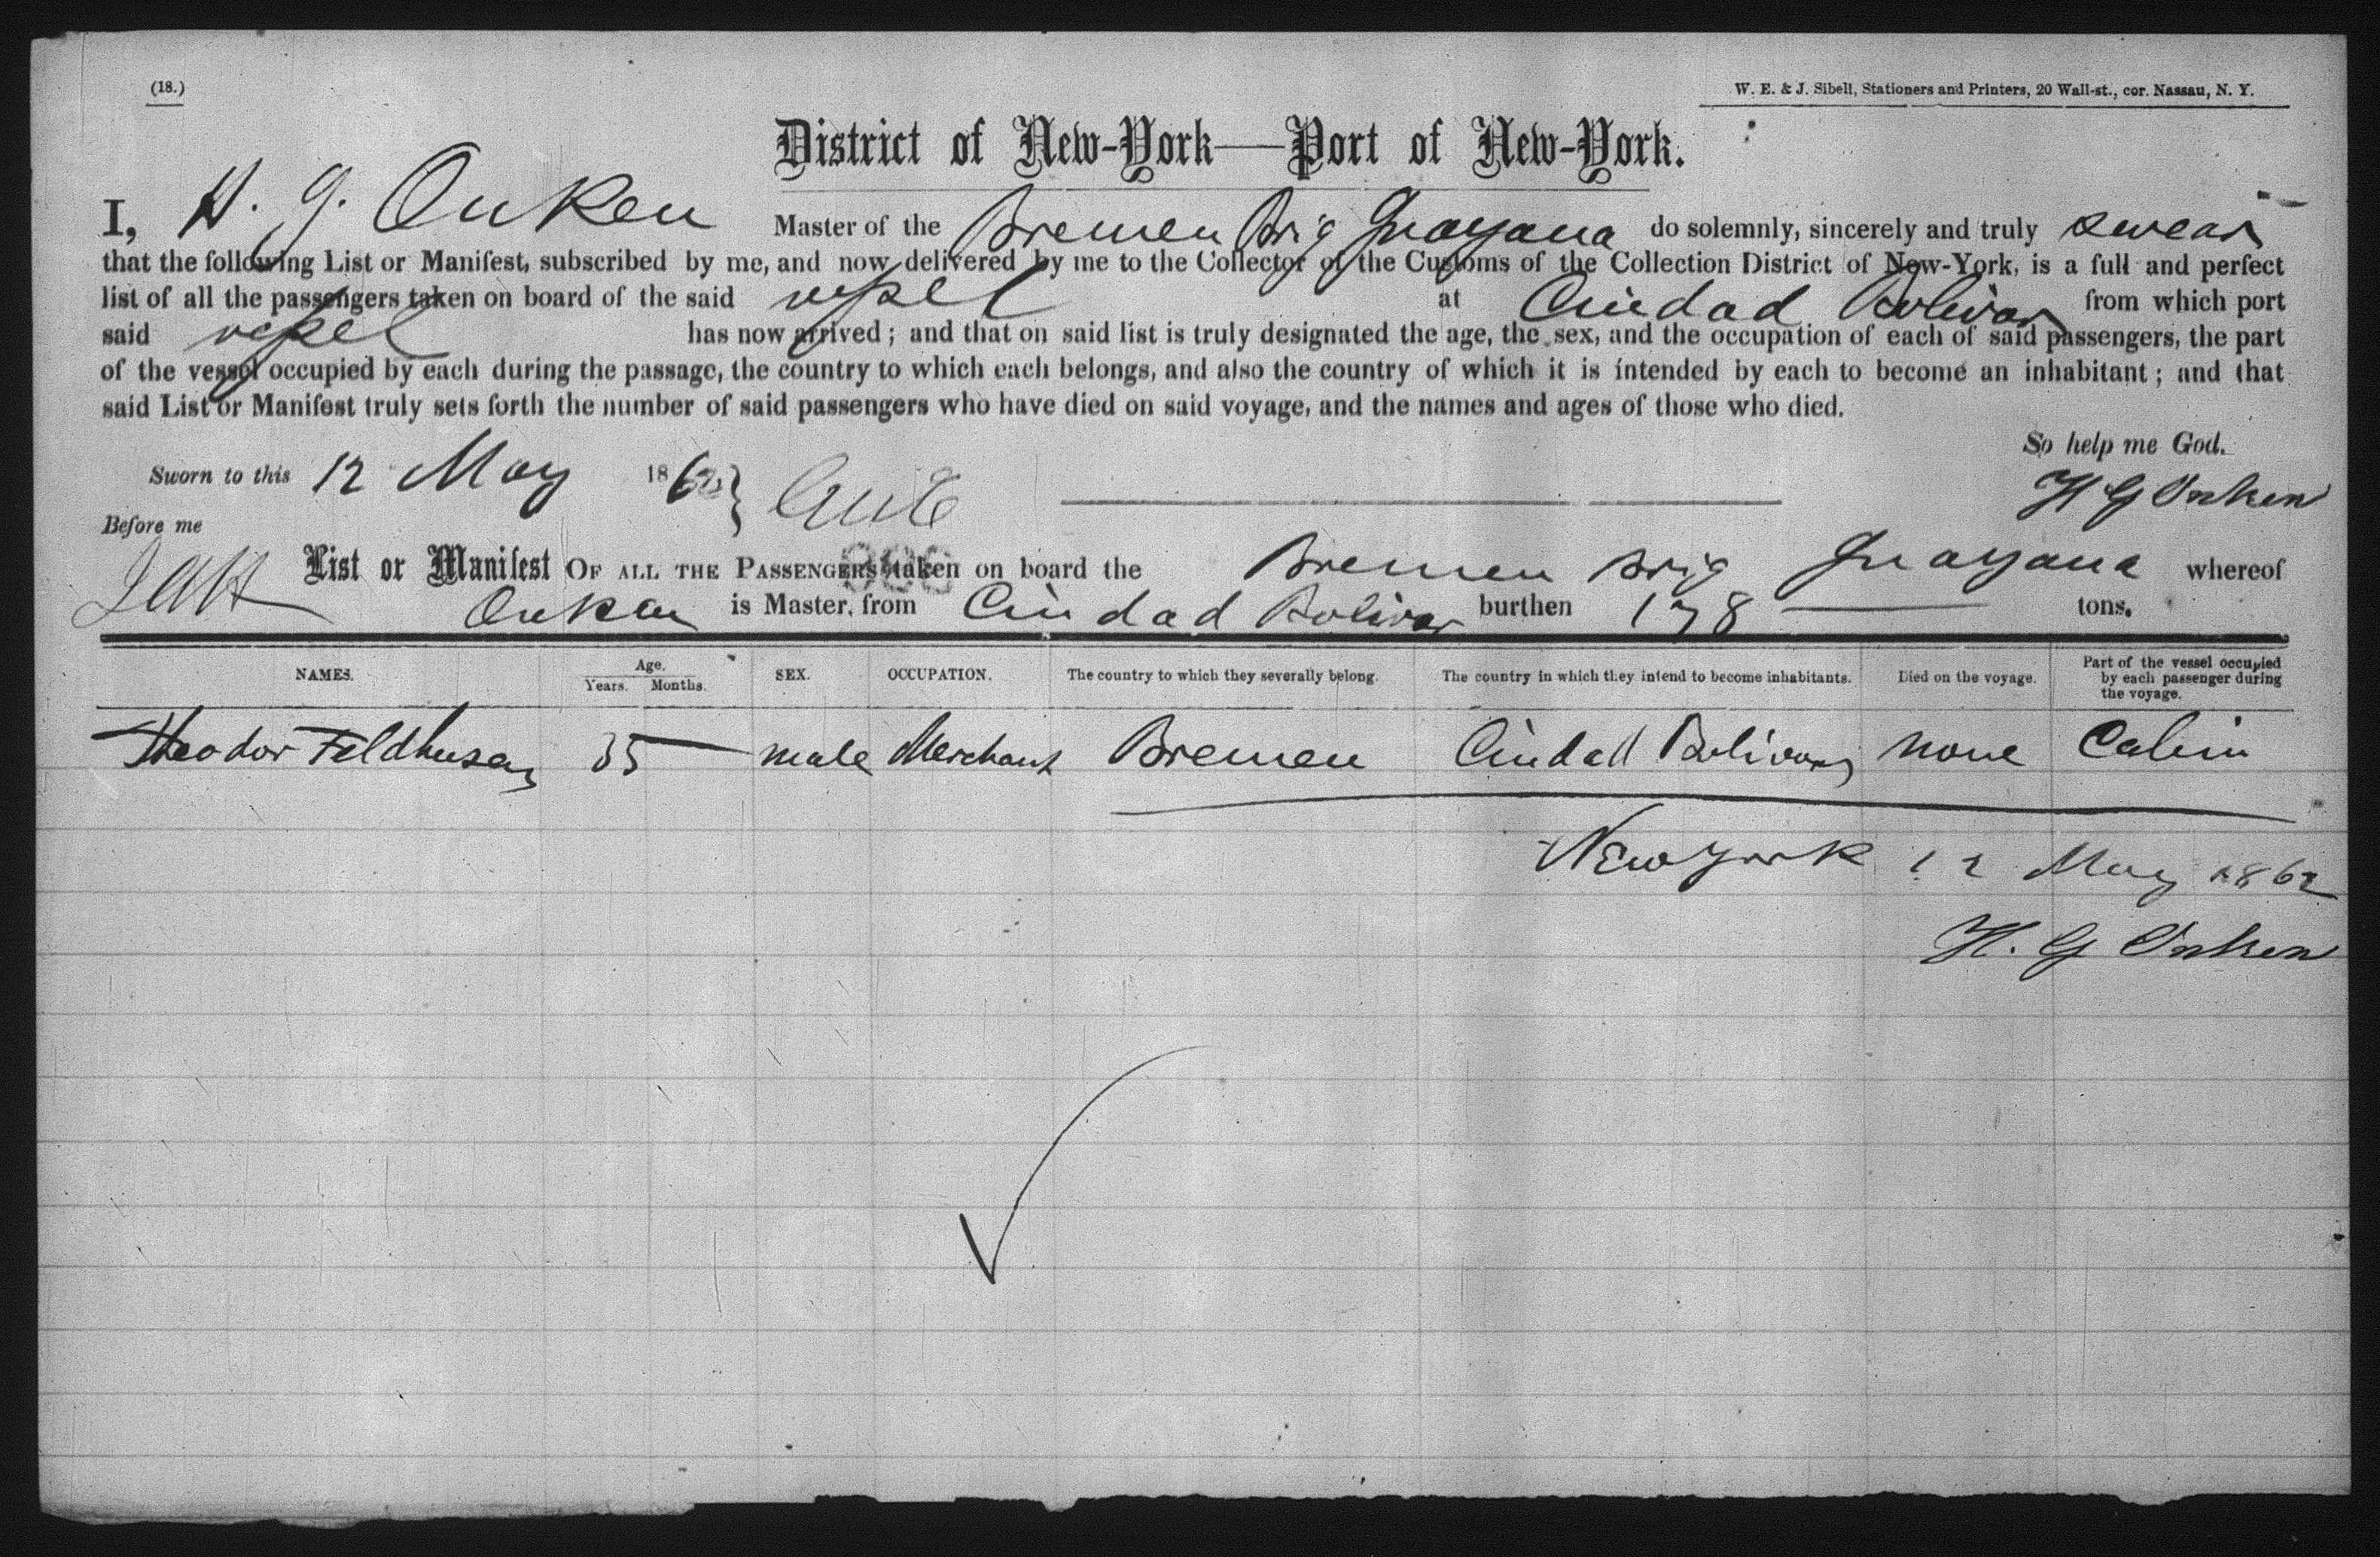 (18.)
W. E. & J. Sibell, Stationers and Printers, 20 Wall-st., cor. Nassau, N. Y.
District of New-York—Port of New-York.
I, H. G. Onken Master of the Bremen Brig Guayana do solemnly, sincerely and truly swear
that the following List or Manifest, subscribed by me, and now delivered by me to the Collector of the Customs of the Collection District of New-York, is a full and perfect
list of all the passengers taken on board of the said vessel at Ciudad Bolivar from which port
said vessel has now arrived; and that on said list is truly designated the age, the sex, and the occupation of each of said passengers, the part
of the vessel occupied by each during the passage, the country to which each belongs, and also the country of which it is intended by each to become an inhabitant; and that
said List or Manifest truly sets forth the number of said passengers who have died on said voyage, and the names and ages of those who died.
So help me God.
Sworn to this 12 May 1862 } H G Onken
Before me
List or Manifest OF ALL THE PASSENGERS taken on board the Bremen Brig Guayana whereof
Onken is Master, from Ciudad Bolivar burthen 178 tons.
NAMES. Age. Years. Months. SEX. OCCUPATION. The country to which they severally belong. The country in which they intend to become inhabitants. Died on the voyage. Part of the vessel occupied by each passenger during the voyage.
Theodor Feldhusen 35 male Merchant Bremen Ciudad Bolivar none Cabin
New York 12 May 1862
H. G Onken